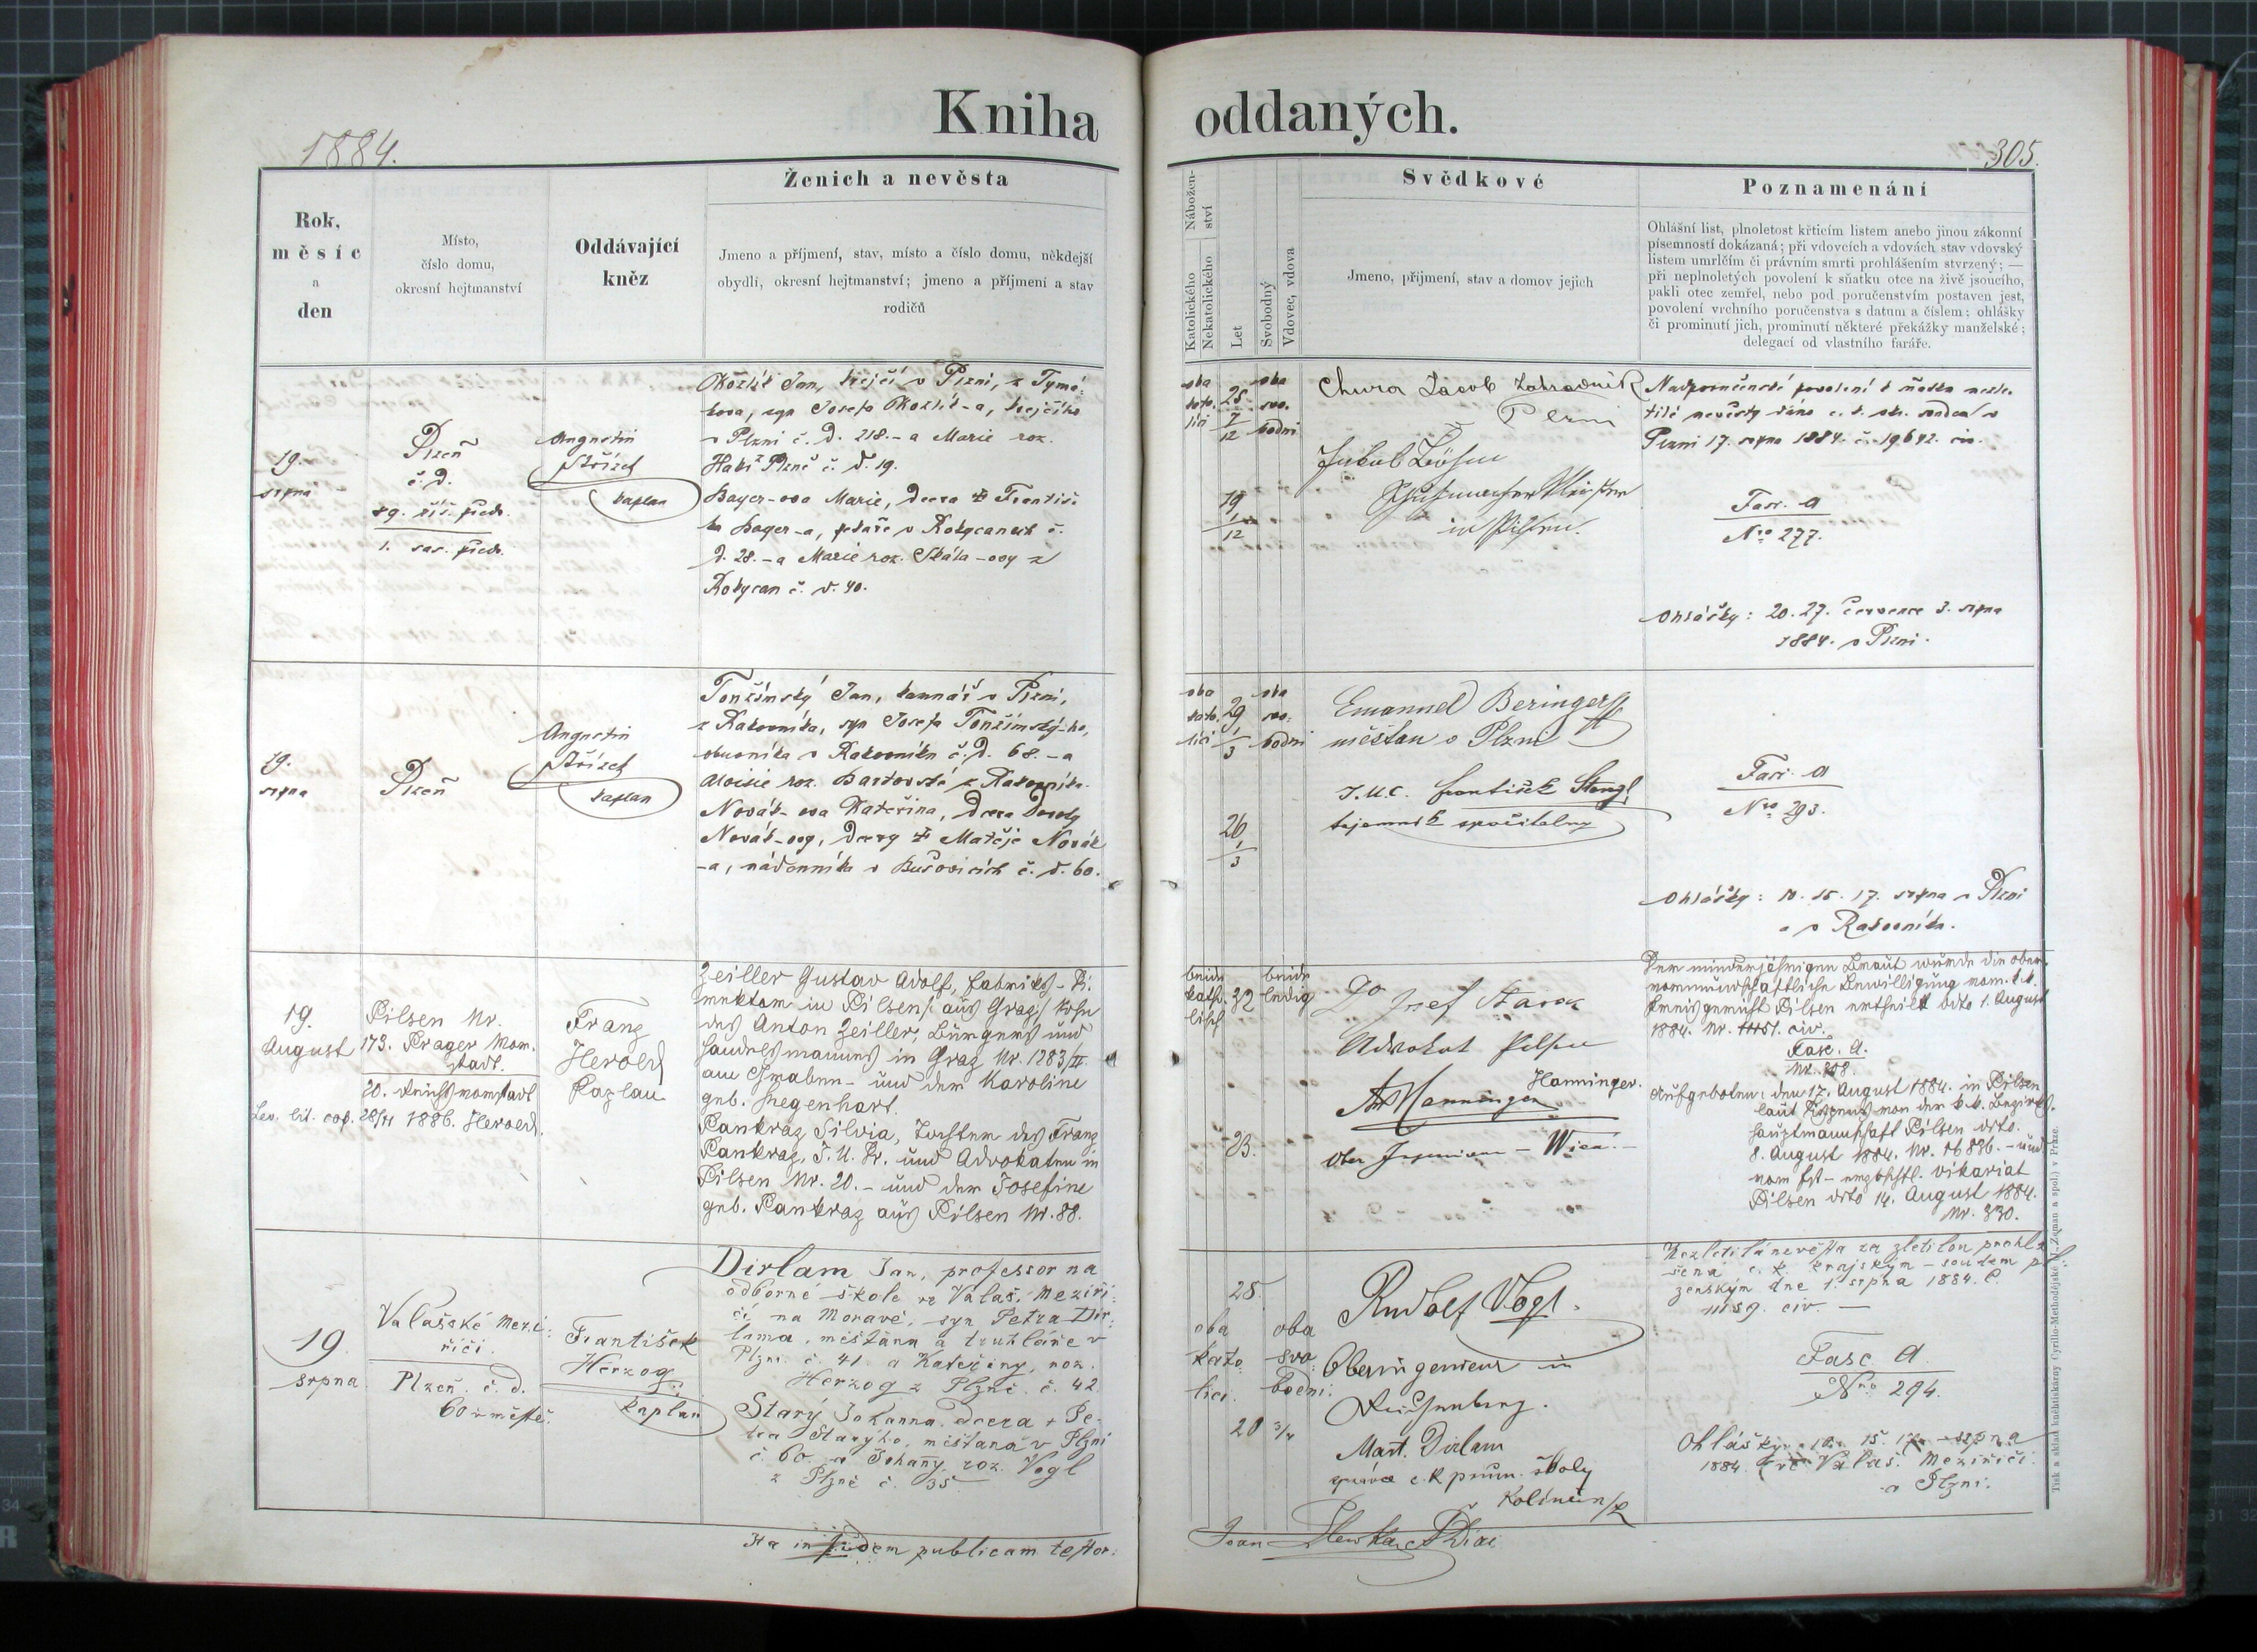 Kniha oddaných.
1884.
305.
Rok,
měsíc
a
den
Místo,
číslo domu,
okresní hejtmanství
Oddávající
kněz
Ženich a nevěsta
Jmeno a příjmení, stav, místo a číslo domu, někdejší
obydlí, okresní hejtmanství; jmeno a příjmení a stav
rodičů
Nábožen-
ství
Katolického
Nekatolického
Let
Svobodný
Vdovec, vdova
Svědkové
Jmeno, přijmení, stav a domov jejich
Poznamenání
Ohlášní list, plnoletost křticím listem anebo jinou zákonní
písemností dokázaná; při vdovcích a vdovách stav vdovský
listem umrlčím či právním smrti prohlášením stvrzený; —
při neplnoletých povolení k sňatku otce na živě jsoucího,
pakli otec zemřel, nebo pod poručenstvím postaven jest,
povolení vrchního poručenstva s datum a číslem; ohlášky
či prominutí jich, prominutí některé překážky manželské;
delegací od vlastního faráře.
19.
srpna
Plzeň
č. d.
89. říš. předm.
1. sas. předm.
Augustin
Střízek
kaplan
Jan, krejčí v Plzni, z Tymá-
kova, syn Josefa krejčího
v Plzni č. d. 218. - a Marie roz.
z Plzně č. d. 19.
Bayer-ova Marie, dcera † Františ-
ka Bayer-a, pekaře v Rokycanech č.
d. 28. - a Marie roz. Skála-ovy z
Rokycan č. d. 40.
oba
kato-
líci
25
7
12
oba
svo-
bodni
19
1
12
Chura Jacob Zahradnik
Plzni
Jakob
Schuhmacher Meister
in Pilsen.
Nadporučenské povolení k sňatku nezle-
tilé nevěsty dáno c. k. okr. soudem v
Plzni 17. srpna 1884. č. 19642. civ.
Fasc. A
Nro 277.
Ohlášky: 20. 27. července 3. srpna
1884. v Plzni.
19.
srpna
Plzeň
Augustin
Střízek
kaplan
Tonžínský Jan, kamnář v Plzni,
z Rakovníka, syn Josefa Tonžínský-ho,
obuvníka v Rakovníku č. d. 68. - a
Aloisie roz. Bartovské z Rakovníka.
Novák-ova Kateřina, dcera Doroty
Novák-ovy, dcery † Matěje Novák
-a, nádenníka v Bučovicích č. d. 60.
oba
kato-
líci
29
1
3
oba
svo-
bodni
26
1
3
Emanuel Beringer
měšťan v Plzni
J.U.C. František Stengl
tajemník spořitelny
Fasc. A
Nro 293.
Ohlášky: 10. 15. 17. srpna v Plzni
a v Rakovníku.
19.
August
Pilsen Nr.
173. Prager Vor-
stadt.
20. Reichsvorstadt
Lev. lit. cop. 28/4 1886. Herold.
Franz
Herold
Kaplan
Zeiller Gustav Adolf, Fabriks-Di-
rektor in Pilsen/: aus Graz/ Sohn
des Anton Zeiller, Bürgers und
Handelsmannes in Graz Nr. 1283/II
am Graben - und der Karoline
geb. Hegenhart.
Pankraz Silvia, Tochter des Franz
Pankraz, J. U. Dr. und Advokaten in
Pilsen Nr. 20. - und der Josefine
geb. Pankraz aus Pilsen Nr. 88.
beide
kath-
lisch
32
beide
ledig
23.
Dr Josef Starck
Advokat Pilsen
Hanninger.
Hanninger
Ober Ingenieur - Wien. -
Der minderjährigen Braut wurde die ober-
vormundschaftliche Bewilligung vom k. k.
Kreisgericht Pilsen ertheilt dto 1. August
1884. Nr. 11151. civ.
Fasc. A.
Nr. 308.
Aufgeboten: den 17. August 1884. in Pilsen
laut Dispens von der k. k. Bezirks-
hauptmannschaft Pilsen dto.
8. August 1884. Nr. 16886. - und
vom fst-erzbschfl. Vikariat
Pilsen dto 14. August 1884.
Nr. 330.
19.
srpna
Valašské Mezi-
říčí.
Plzeň. č. d.
60 v městě.
František
Herzog
kaplan
Dirlam Jan, professor na
odborné škole ve Valaš. Meziří-
čí na Moravě, syn Petra Dir-
lama, měšťana a truhláře v
Plzni č. 41. a Kateřiny, roz.
Herzog z Plzně č. 42.
Starý Johanna, dcera † Pe-
tra Starýho, měšťana v Plzni
č. 60. a Johany, roz. Vogl
z Plzně č. 35
25.
oba
kato-
líci.
oba
svo-
bodni.
20 3/4
Rudolf Vogl.
Oberingenieur in
Reichenberg.
Mart. Dirlam
správce c. k. prům. školy
Nezletilá nevěsta za zletilou prohlá-
šená c. k. krajským soudem pl-
zeňským dne 1. srpna 1884. č.
11159. civ. —
Fasc. A.
Nro 294.
Ohlášky: 10. 15. 17. srpna
1884. ve Valaš. Meziříčí
a Plzni.
Ita in fidem publicam testor.
Joan
Tisk a sklad knihtiskárny Cyrillo-Methodějské (J. Zeman a spol.) v Praze.